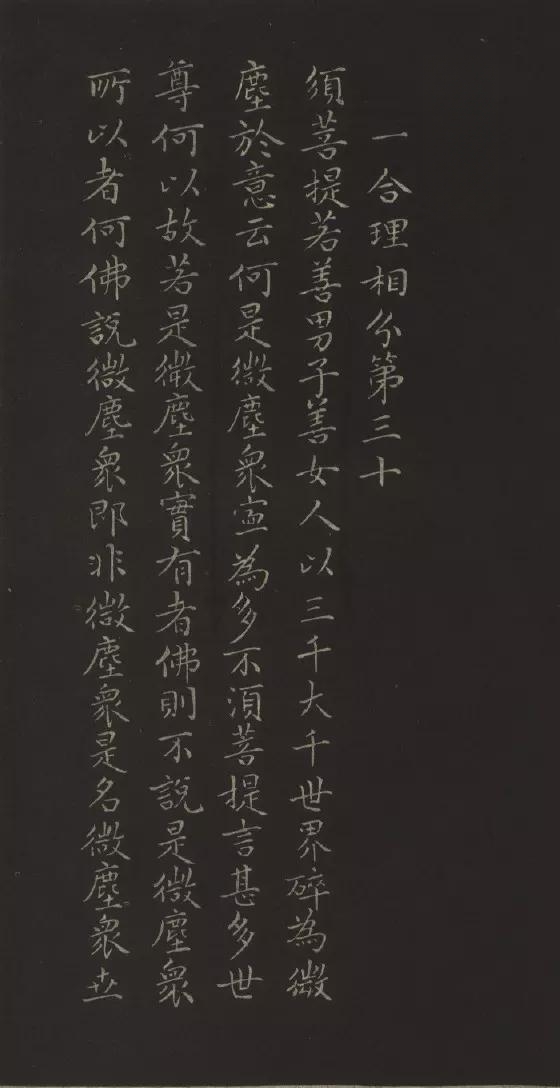 一合理相分第三十
須菩提若善男子善女人以三千大千世界碎為微
塵於意云何是微塵衆寍為多不須菩提言甚多世
尊何以故若是微塵衆實有者佛則不說是微塵衆
所以者何佛說微塵衆即非微塵衆是名微塵衆世